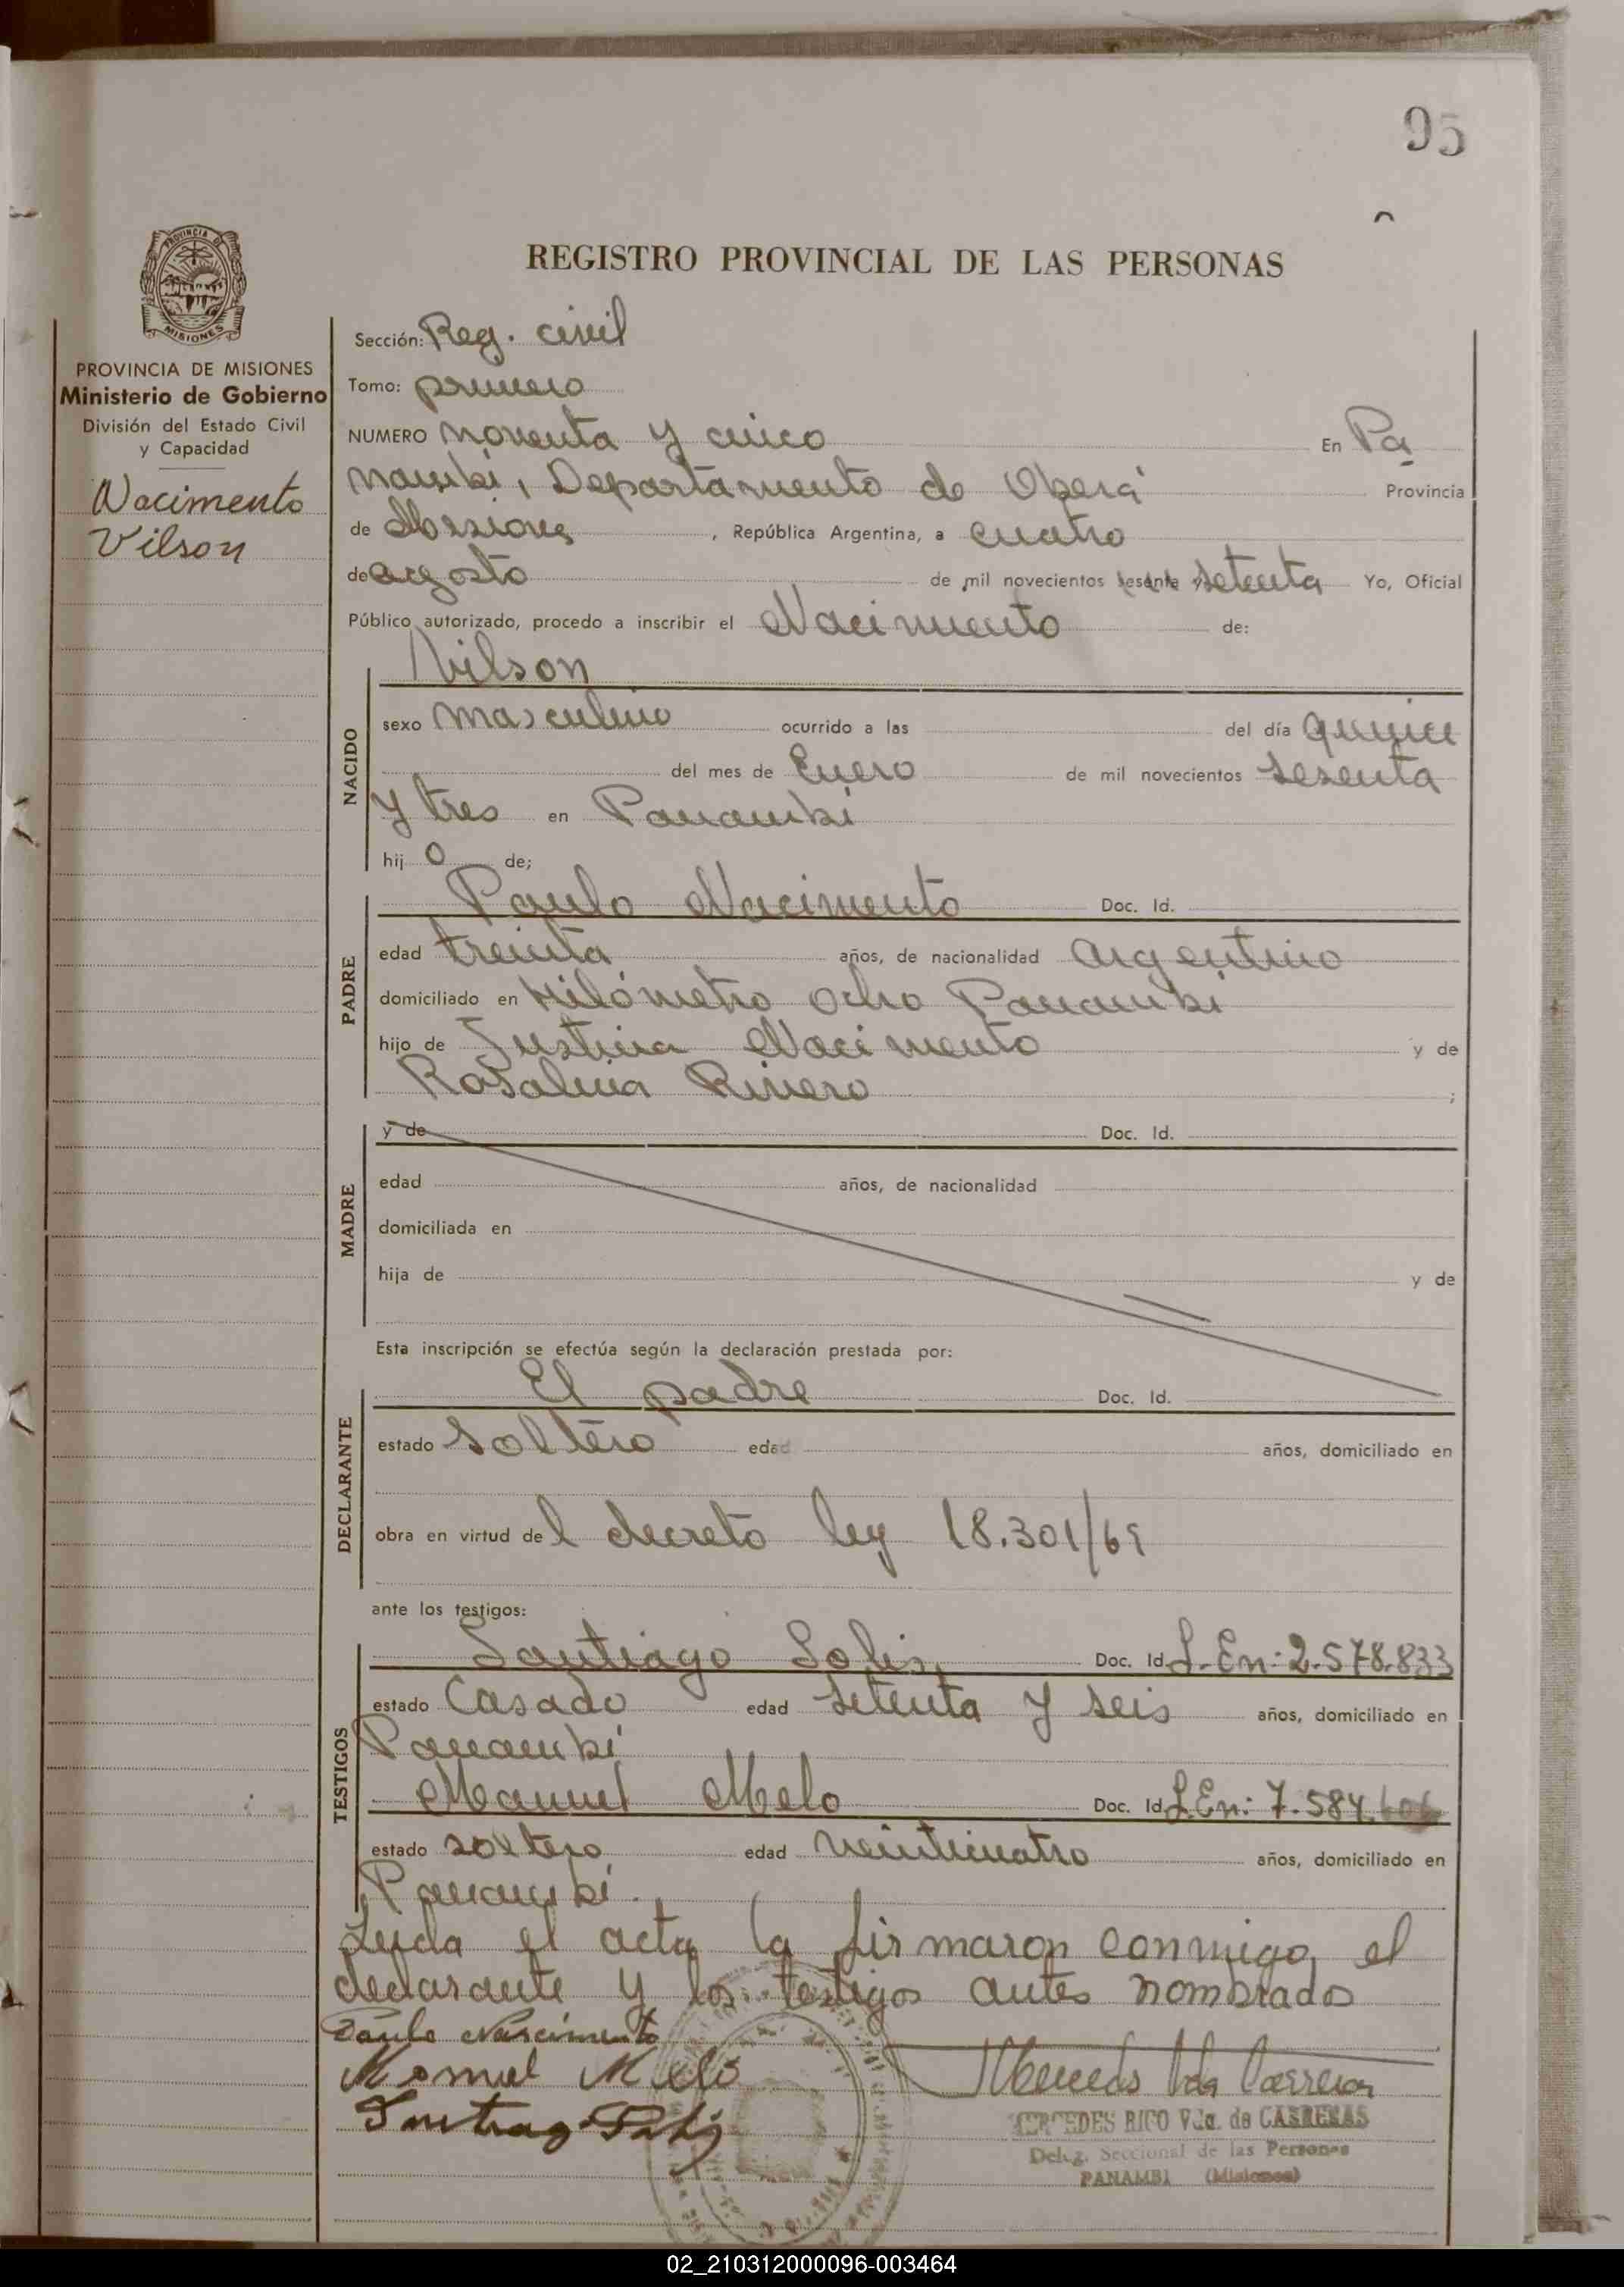 95
REGISTRO PROVINCIAL DE LAS PERSONAS
PROVINCIA DE MISIONES
PROVINCIA DE MISIONES
Ministerio de Gobierno
División del Estado Civil
y Capacidad
Nacimento
Vilson
Sección: Reg. civil
Tomo: primero
NUMERO noventa y cinco En Pa
nambi, Departamento de Oberá Provincia
de Misiones, República Argentina, a cuatro
de agosto de mil novecientos setenta Yo, Oficial
Público autorizado, procedo a inscribir el Nacimiento de:
Vilson
NACIDO
sexo masculino ocurrido a las del día quince
del mes de Enero de mil novecientos sesenta
y tres en Panambi
hij o de;
PADRE
Paulo Nacimento Doc. Id.
edad treinta años, de nacionalidad argentino
domiciliado en Kilómetro ocho Panambi
hijo de Justina Nacimento y de
Rosalina Rivero ;
MADRE
y de Doc. Id.
edad años, de nacionalidad
domiciliada en
hija de y de
Esta inscripción se efectúa según la declaración prestada por:
DECLARANTE
El padre Doc. Id.
estado soltero edad años, domiciliado en
obra en virtud de l decreto ley 18.301/69
ante los testigos:
TESTIGOS
Santiago Solis Doc. Id. L.En: 2.578.833
estado Casado edad setenta y seis años, domiciliado en
Panambi
Manuel Melo Doc. Id. L.En: 7.584.
estado soltero edad veinticuatro años, domiciliado en
Panambi.
Leida el acta la firmaron conmigo, el
declarante y los testigos antes nombrados
Paulo Nascimento
Manuel Melo
MERCEDES RICO Vda. de CARRERAS
Deleg. Seccional de las Personas
PANAMBI (Misiones)
02_210312000096-003464